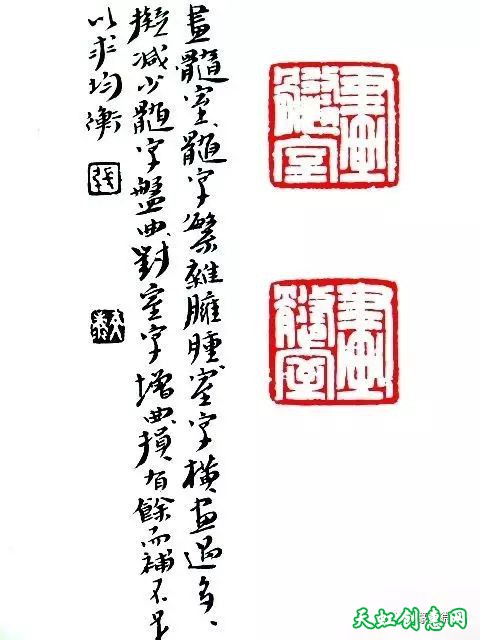 畫髓室髓字繁雜臃腫室字橫畫過多、
擬減少髓字盤曲對室字增曲損有餘而補不足
以求均衡
張
畫髓室
畫髓室
天虹创意网